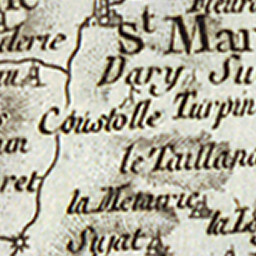 St. Mar
derie
Dary Su
Coustolle Turpin
le Tailland
ret
la Metairie
la
Sujat